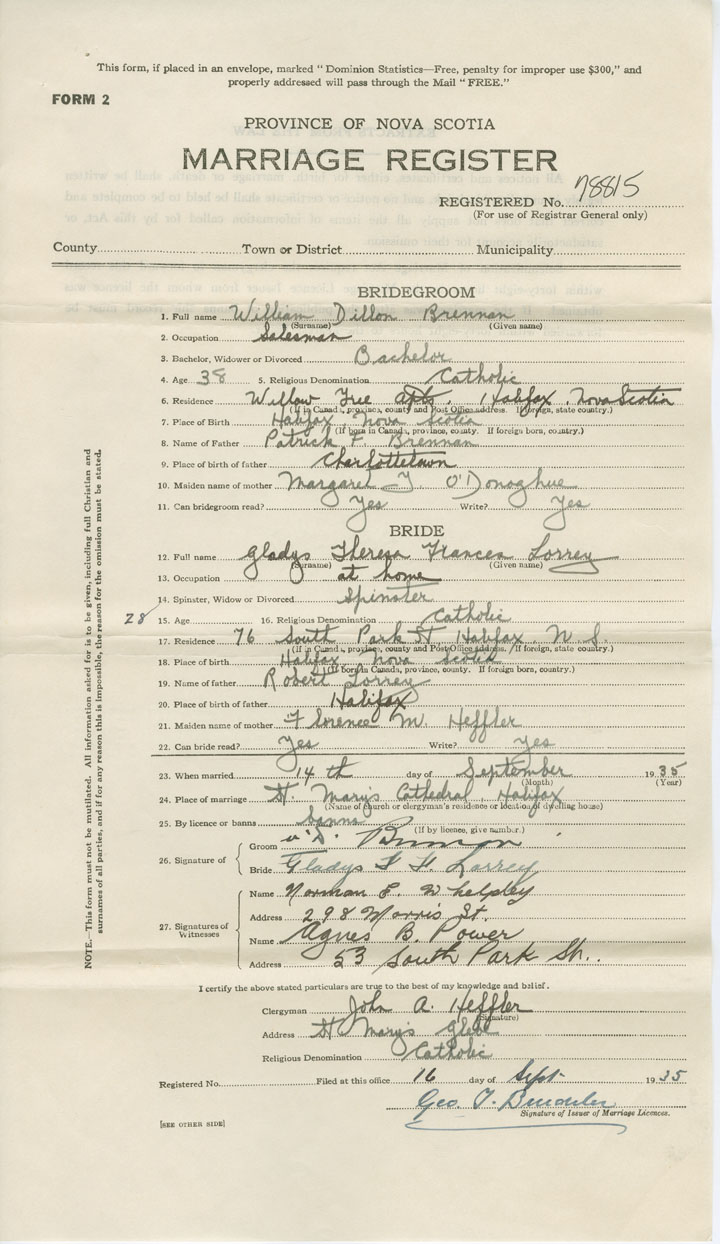 This form, if placed in an envelope, marked "Dominion Statistics—Free, penalty for improper use $300," and
properly addressed will pass through the Mail "FREE."
FORM 2
PROVINCE OF NOVA SCOTIA
MARRIAGE REGISTER
REGISTERED No. 78815
(For use of Registrar General only)
County Town or District Municipality
BRIDEGROOM
1. Full name William Dillon Brennan
(Surname) (Given name)
2. Occupation Salesman
3. Bachelor, Widower or Divorced Bachelor
4. Age 38 5. Religious Denomination Catholic
6. Residence Willow Tree Apts. Halifax, Nova Scotia
(If in Canada, province, county and Post Office address. If foreign, state country.)
7. Place of Birth Halifax, Nova Scotia
(If born in Canada, province, county. If foreign born, country.)
8. Name of Father Patrick F. Brennan
9. Place of birth of father Charlottetown
10. Maiden name of mother Margaret J. O'Donoghue
11. Can bridegroom read? Yes Write? Yes
BRIDE
12. Full name Gladys Theresa Frances Lorrey
(Surname) (Given name)
13. Occupation at home
14. Spinster, Widow or Divorced Spinster
28 15. Age 16. Religious Denomination Catholic
17. Residence 76 South Park St Halifax, N.S.
(If in Canada, province, county and Post Office address. If foreign, state country.)
18. Place of birth Halifax Nova Scotia
(If born in Canada, province, county. If foreign born, country.)
19. Name of father Robert Lorrey
20. Place of birth of father Halifax
21. Maiden name of mother Florence M. Heffler
22. Can bride read? Yes Write? Yes
23. When married 14th day of September 1935
(Month) (Year)
24. Place of marriage St. Mary's Cathedral, Halifax
(Name of church or clergyman's residence or location of dwelling house)
25. By licence or banns banns
(If by licence, give number.)
26. Signature of
Groom Brennan
Bride Gladys Lorrey
27. Signatures of Witnesses
Name Norman E. Whelpley
Address 298 Morris St.
Name Agnes B. Power
Address 53 South Park St.
I certify the above stated particulars are true to the best of my knowledge and belief.
Clergyman John A. Heffler
(Signature)
Address St Mary's Glebe
Religious Denomination Catholic
Registered No. Filed at this office 16 day of Sept 1935
Geo. T.
Signature of Issuer of Marriage Licences.
[SEE OTHER SIDE]
NOTE.—This form must not be mutilated. All information asked for is to be given, including full Christian and
surnames of all parties, and if for any reason this is impossible, the reason for the omission must be stated.